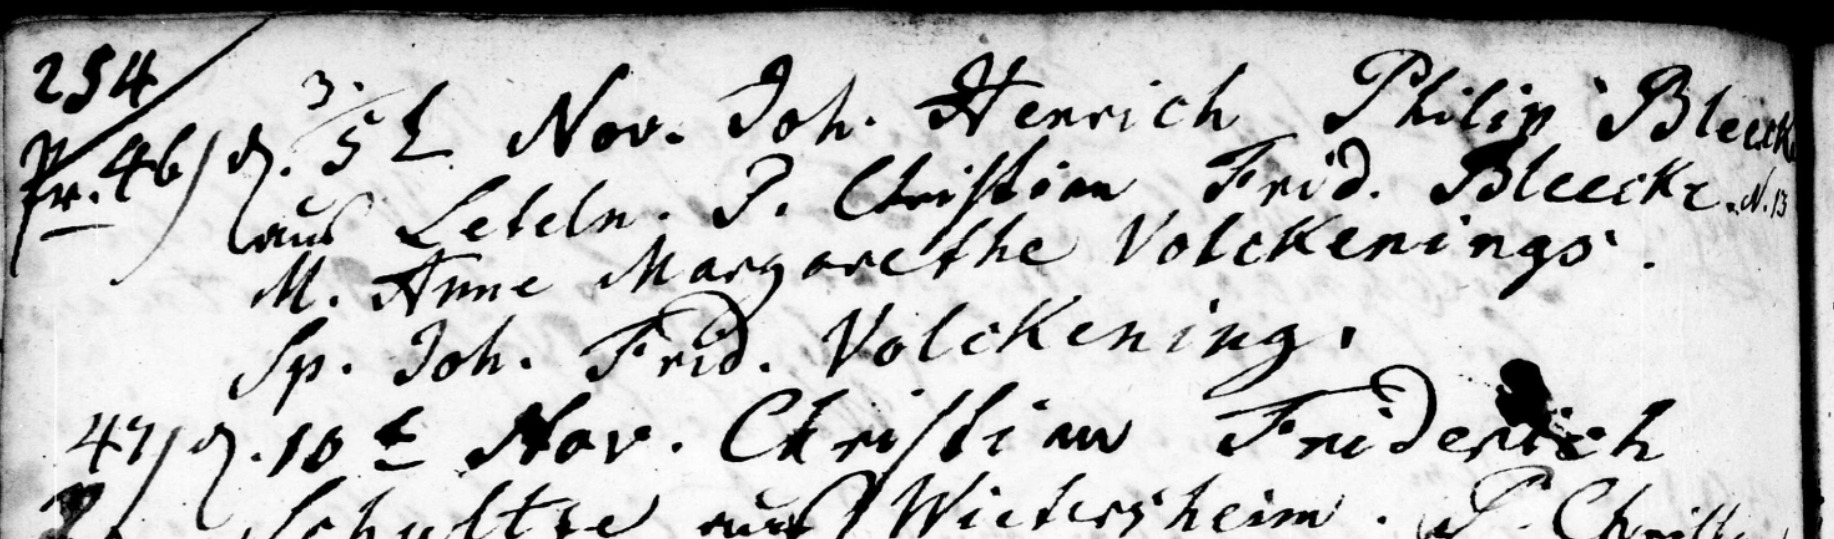 254
Pr. 46) d. 3./5 t Nov. Joh. Henrich Philip Bleeck
aus Leteln. P. Christian Frid. Bleecke. N. 13
M. Anne Margarethe Volckenings.
Sp. Joh. Frid. Volckening.
47) d. 10 t Nov. Christian Friderich
Schultze aus Wietersheim. P. Christ